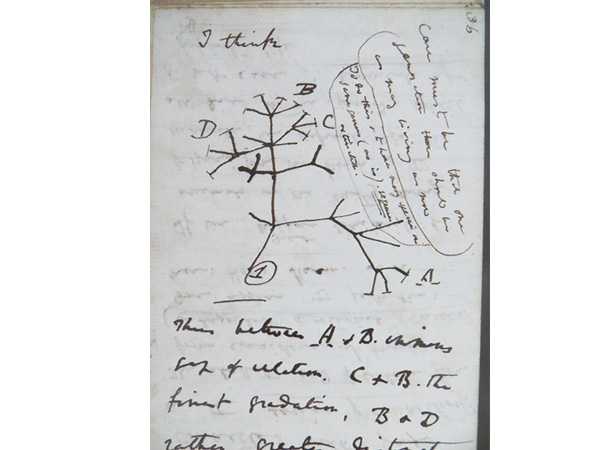 36
I think
Case must be that one
generation then should be
as many living as now
To do this & to have many species in
same genus (as is), requires
extinction.
B
C
D
A
1
Thus between A & B. immense
gap of relation. C & B. the
finest gradation, B & D
rather greater distinction